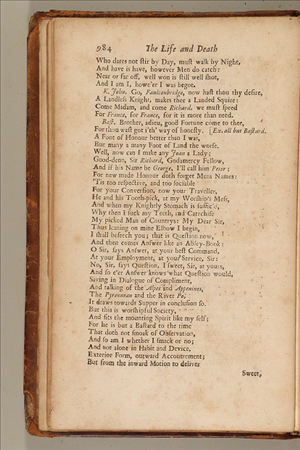 984 The Life and Death
Who dares not ſtir by Day, muſt walk by Night,
And have is have, however Men do catch:
Near or far off, well won is ſtill well ſhot,
And I am I, howe'er I was begot.
K. John. Go, Faulconbridge, now haſt thou thy deſire,
A Landleſs Knight, makes thee a Landed Squire:
Come Madam, and come Richard, we muſt ſpeed
For France, for France, for it is more than need.
Baſt. Brother, adieu, good Fortune come to thee,
For thou waſt got i'th' way of honeſty. [Ex. all but Baſtard.
A Foot of Honour better than I was,
But many a many Foot of Land the worſe.
Well, now can I make any Joan a Lady;
Good-den, Sir Richard, Godamercy Fellow,
And if his Name be George, I'll call him Peter;
For new made Honour doth forget Mens Names:
'Tis too reſpective, and too ſociable
For your Converſion, now your Traveller,
He and his Tooth-pick, at my Worſhip's Meſs,
And when my Knightly Stomach is ſuffic'd,
Why then I ſuck my Teeth, and Catechiſe
My picked Man of Countrys: My Dear Sir,
Thus leaning on mine Elbow I begin,
I ſhall beſeech you; that is Queſtion now,
And then comes Anſwer like an Abſey-Book:
O Sir, ſays Anſwer, at your beſt Command,
At your Employment, at your Service, Sir:
No, Sir, ſays Queſtion, I ſweet, Sir, at yours,
And ſo e'er Anſwer knows what Queſtion would,
Saving in Dialogue of Compliment,
And talking of the Alps and Appenines,
The Pyrennean and the River Po,
It draws towards Supper in concluſion ſo.
But this is worſhipful Society,
And fits the mounting Spirit like my ſelf;
For he is but a Baſtard to the time
That doth not ſmoak of Obſervation,
And ſo am I whether I ſmack or no;
And not alone in Habit and Device,
Exterior Form, outward Accoutrement;
But from the inward Motion to deliver
Sweet,